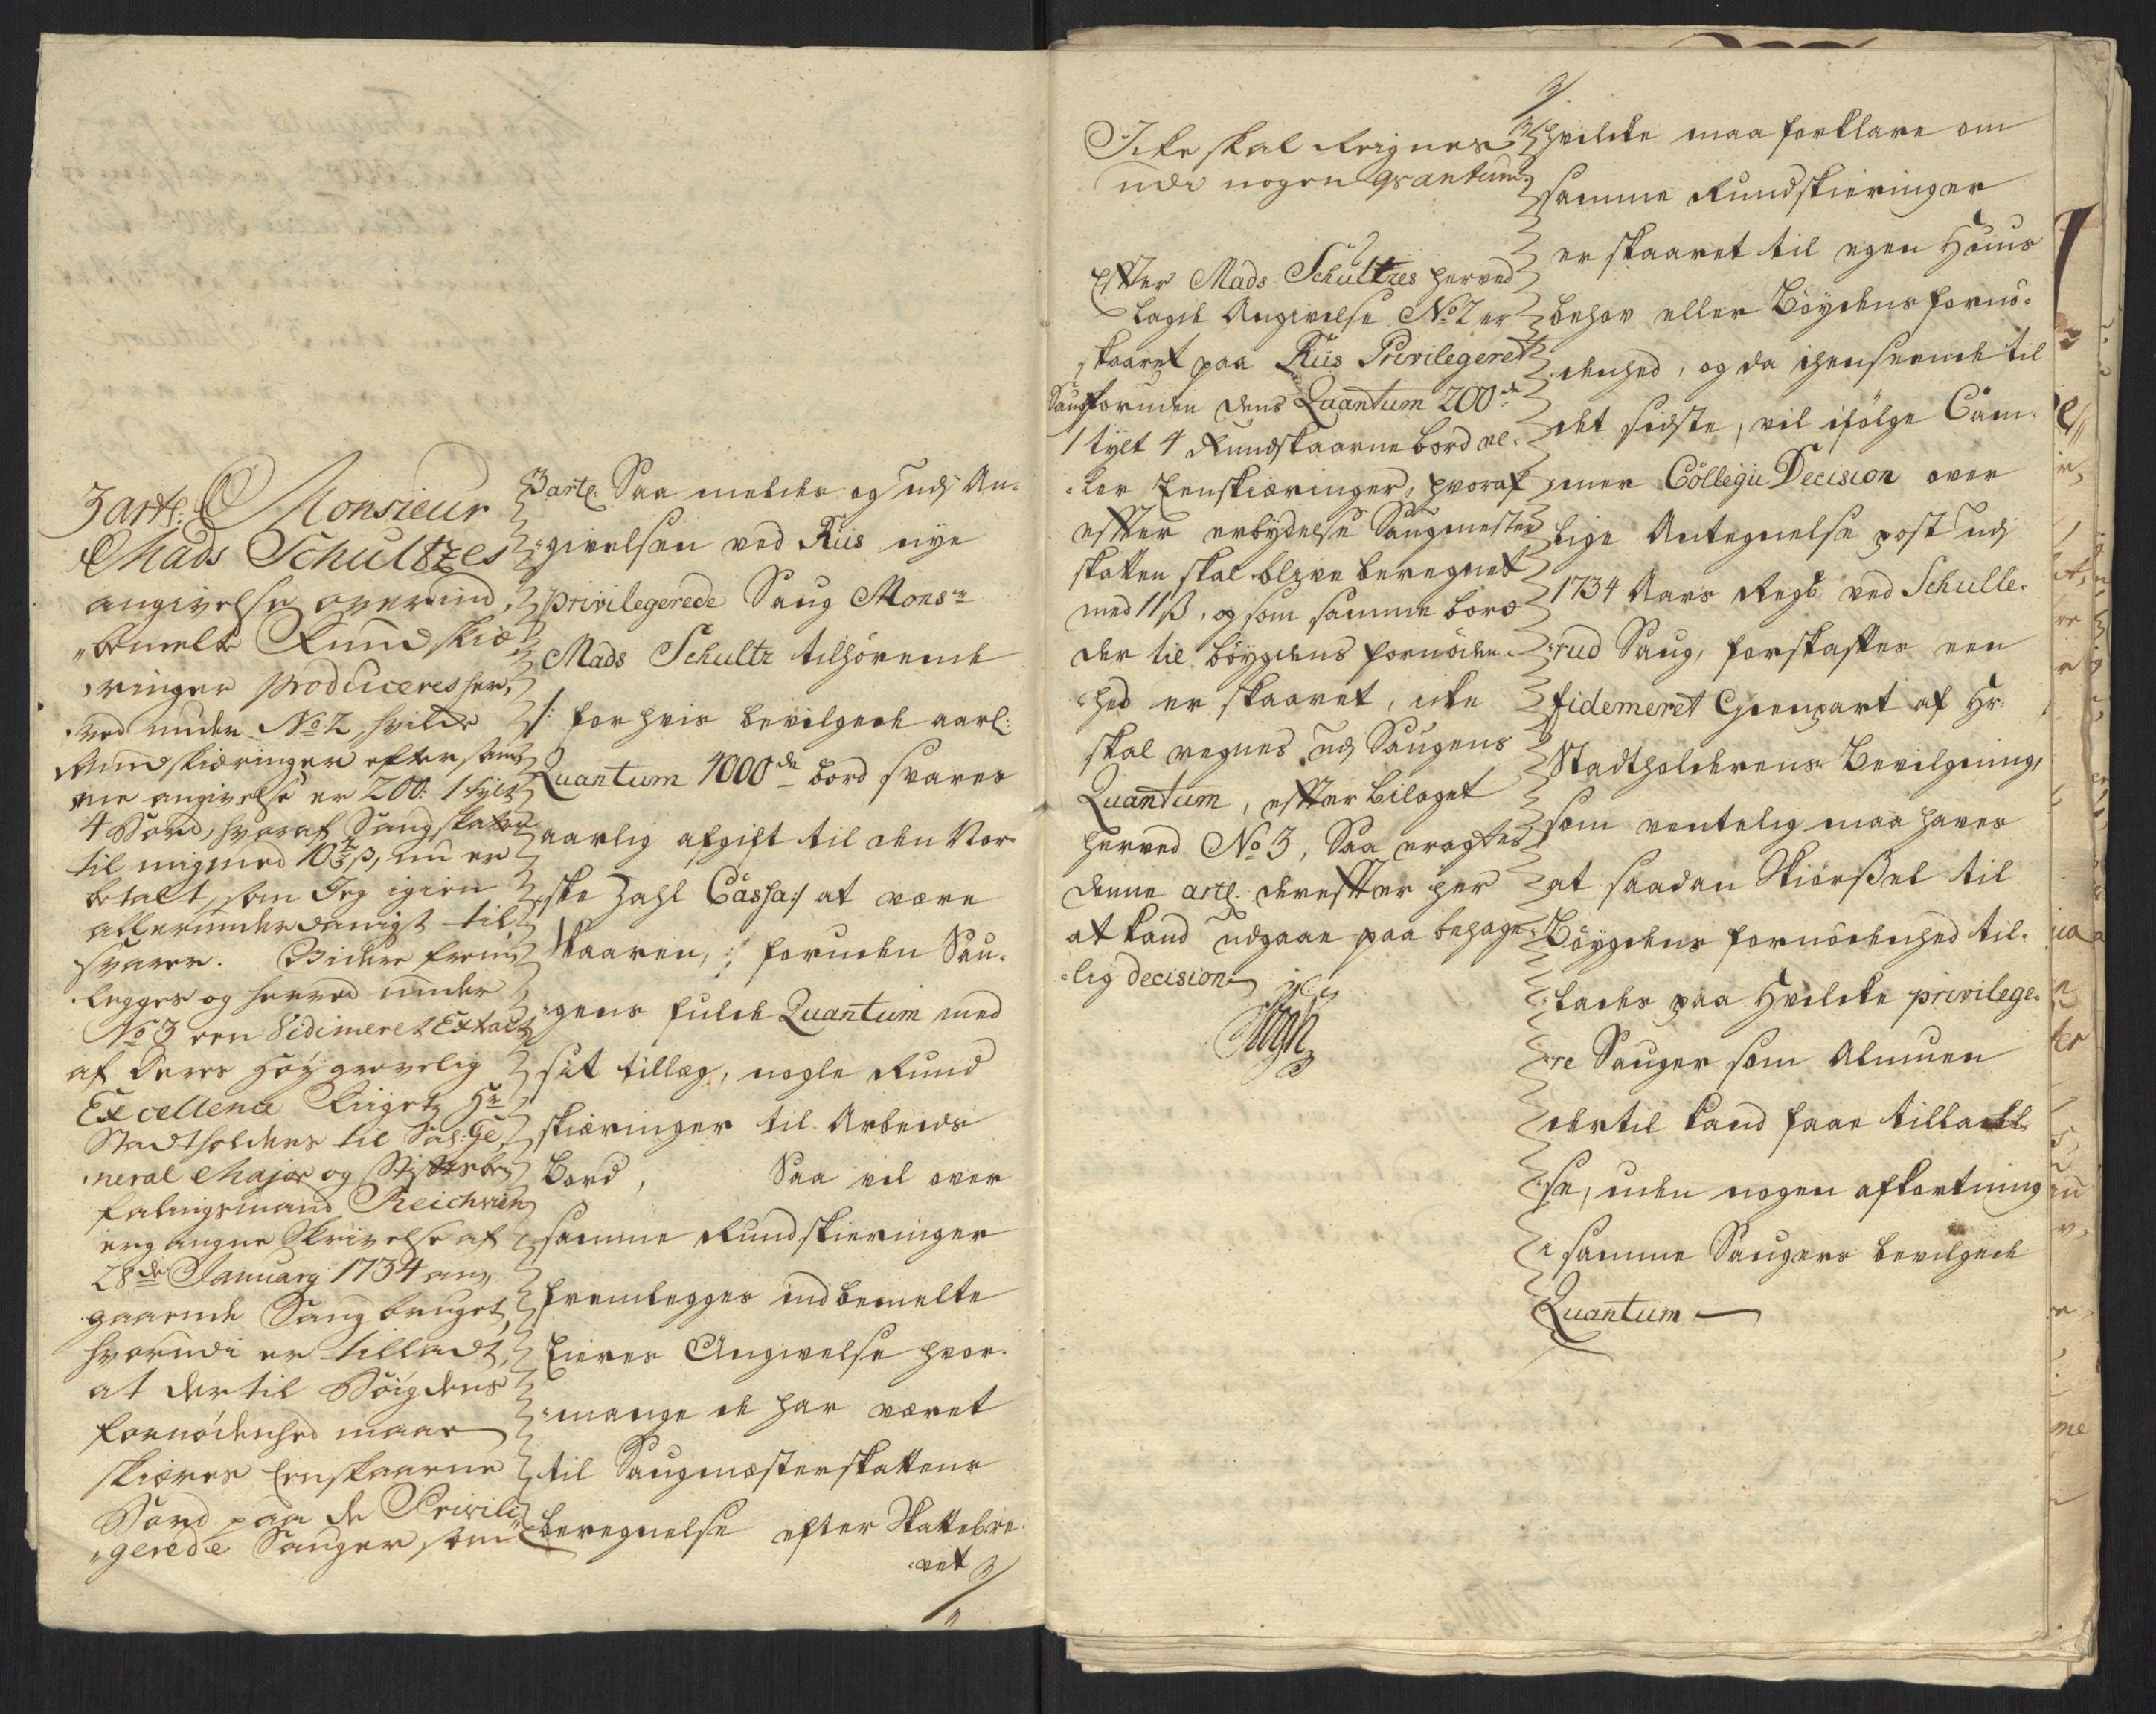 3 arte. Monsieur
Mads Schultzes
angivelse over ind,
„bemelte Rundskiæ„
„ringer produceres her„
„ved under No 2, hvilcke
Rundskiæringer efter sam„
me angivelse er 200: 1 tylt
4 Bord, hvoraf Saugskatten
til mig med 10 2/3 ß, nu er
betalt, som Jeg igien
allerunderdanigst til„
svarer. Videre frem„
legges og herved under
No 3 een Vidimeret Extract
af Deres Høygrevelig
Excellence Riigets Hr
Stadtholders til Sal: Ge„
„neral Major og Stiftsbe„
falingsmand Reichwein
ergangne Skrivelse af
28de January 1734 an„
gaaende Saugbruget,
hvorudi er tilladt,
at der til Bøigdens
fornødenhed maae
skiæres Eenskaarne
Bord paa de Privili„
„gerede Sauger som
3 arte. Saa meldes og udj An„
„givelsen ved Riis nye
privilegerede Saug Monsr
Mads Schultz tilhørende
/: for hvis bevilgede aarl:
Quantum 4000de bord svares
aarlig afgift til den Nor„
„ske Zahl Cassa :/ at være
skaaren, foruden Sau„
„gens fulde Quantum med
sit tillæg, nogle Rund
skiæringer til Arbeids
Bord, Saa vil over
samme Rundskieringer
fremlegges indbemelte
Eieres Angivelse hvor„
„mange de har været
til Saugmesterskattens
beregnelse efter Skattebre„
„vet
Icke skal Reignes
udi nogen Qvantum.
Efter Mads Schultzes herved
lagde Angivelse No 2 er
skaaret paa Riis Privilegeret
Saug foruden dens Quantum 200de
1 tylt 4 Rundskaarne bord el„
„ler Eenskiæringer, hvoraf
efter erbydelse Saugmester
skatten skal blive beregnet
med 11 ß, og som samme bord
der til bøygdens fornøden„
„hed er skaaret, icke
skal regnes udj Saugens
Quantum, efter bilaget
herved No 3, Saa eragtes
denne arte. derefter her
at kand udgaae paa behage„
„lig decision
hvilcke maa forklare om
samme Rundskieringer
er skaaret til egen Huus
behov eller Bøydens fornø„
„denhed, og da ihenseende til
det sidste, vil ifølge Cam„
mer Collegii Decision over
lige Antegnelse post udj
1734 Aars Regsk. ved Schulle„
„rud Saug, forskaffes een
fidemeret Gienpart af Hr:
Stadtholderens Bevilgning,
som ventelig maa haves
at saadan Skiørßel til
Bøygdens fornødenhed til„
„lades paa Hvilcke privilege„
„re Sauger som Almuen
dertil kand faae tilladel„
„se, uden nogen afkortning
i samme Saugers bevilgede
Quantum